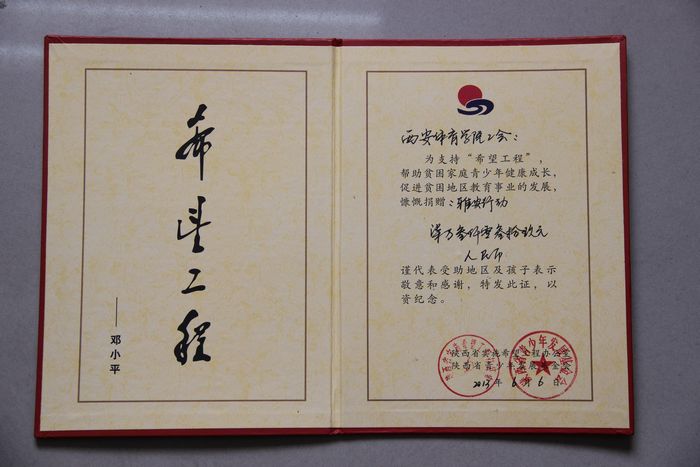 希望工程
——邓小平
西安体育学院工会：
为支持“希望工程”，
帮助贫困家庭青少年健康成长，
促进贫困地区教育事业的发展，
慷慨捐赠：雅安行动
万叁仟零叁拾玖元
人民币
谨代表受助地区及孩子表示
敬意和感谢，特发此证，以
资纪念。
陕西省实施希望工程办公室
陕西省青少年发展基金会
2013年6月6日